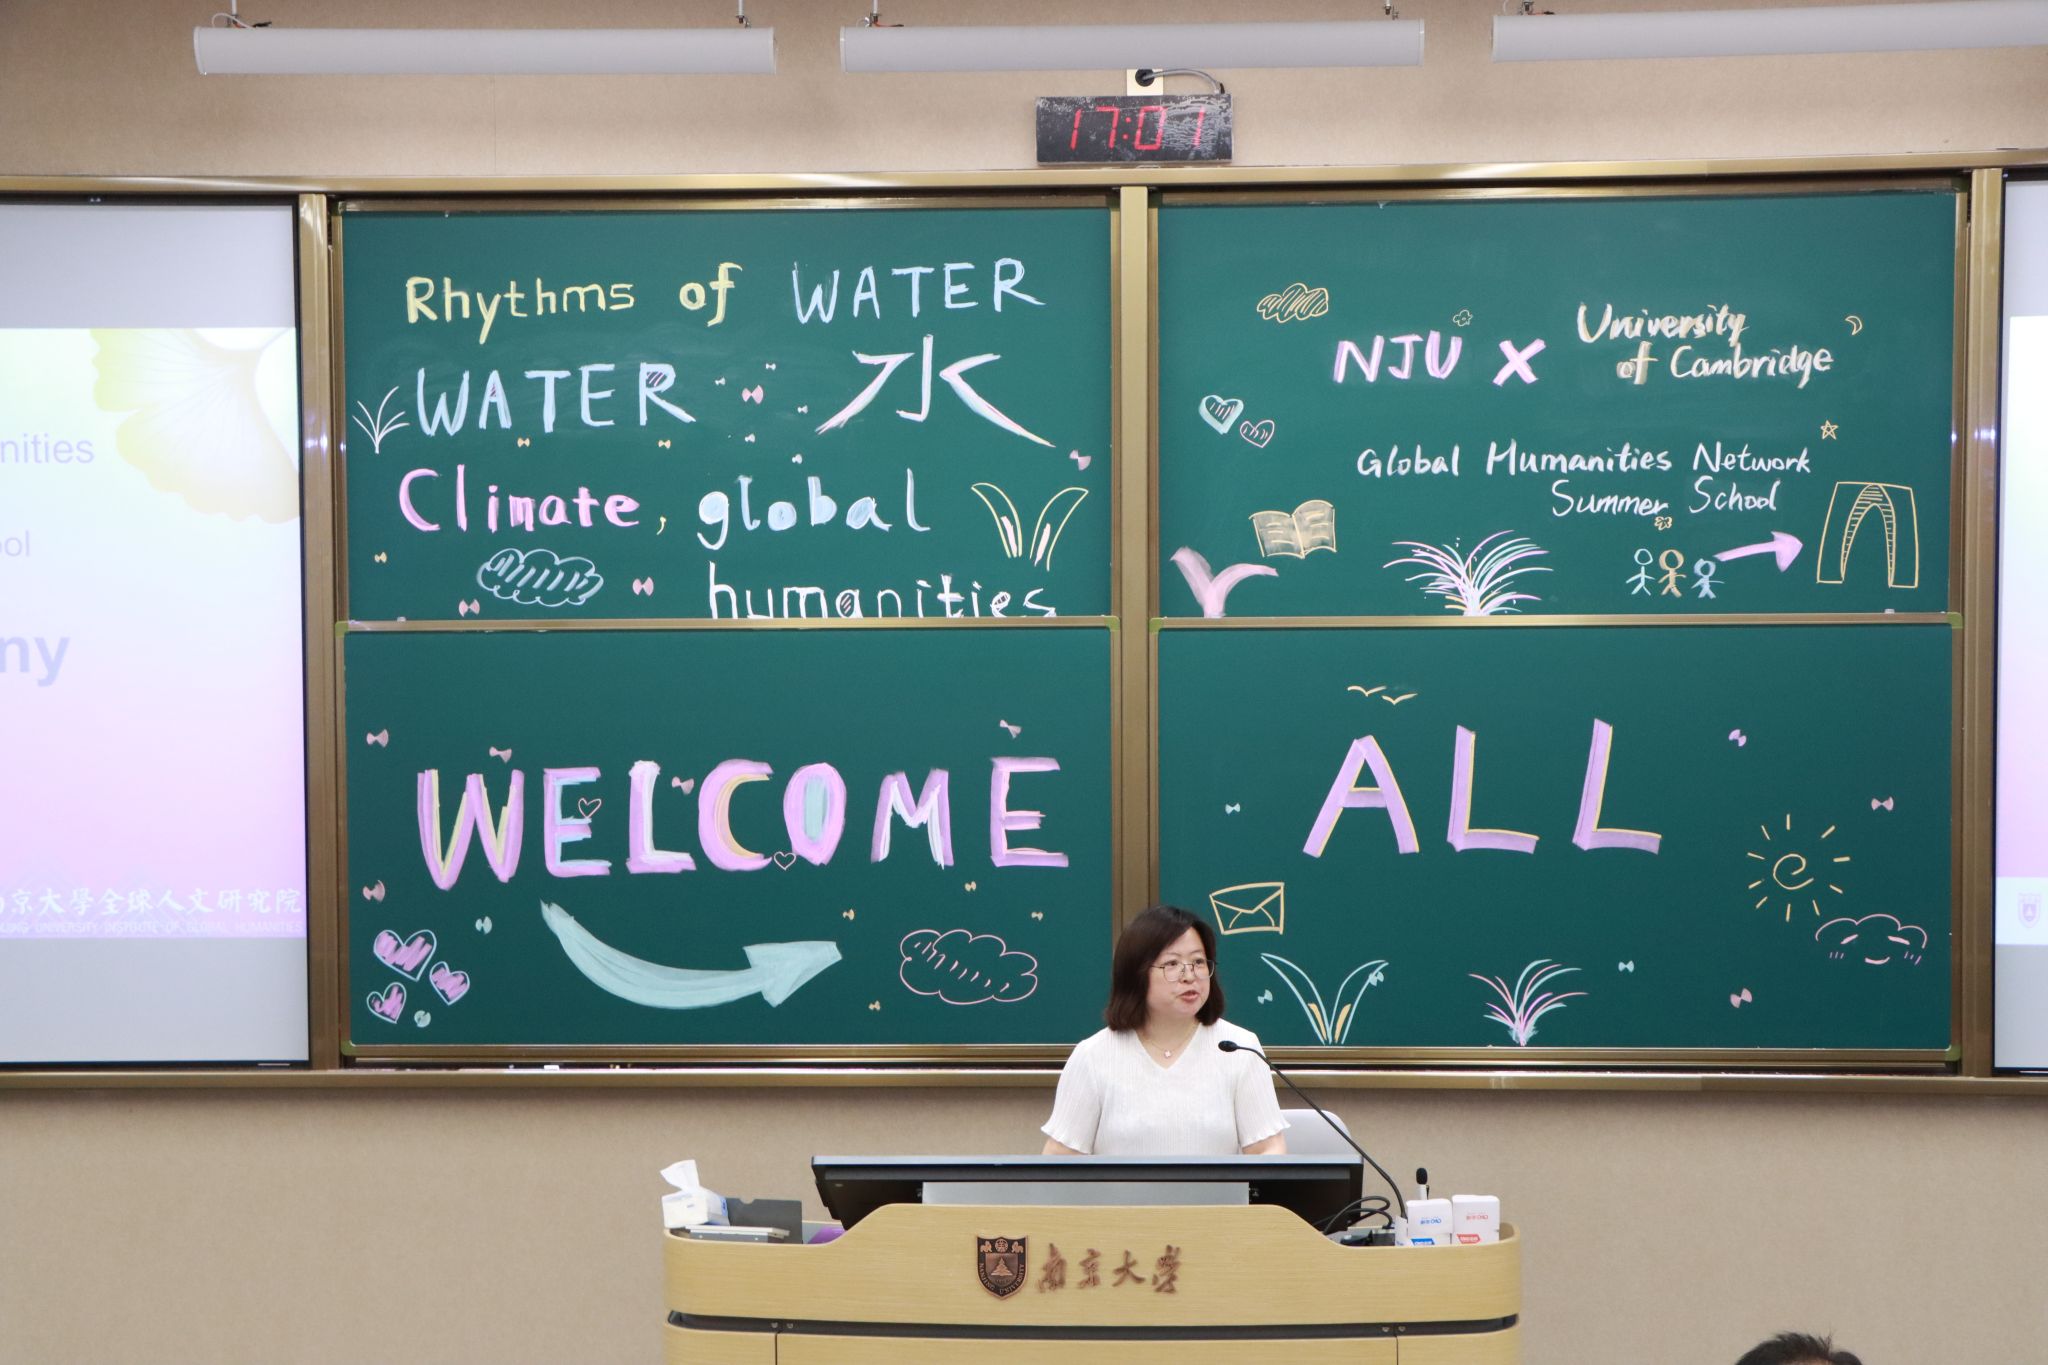 17:07
Rhythms of WATER
WATER 水
Climate, global
humanities
NJU X University
of Cambridge
Global Humanities Network
Summer School
WELCOME
ALL
nities
ol
ny
京大學全球人文研究院
UNIVERSITY INSTITUTE OF GLOBAL HUMANITIES
南京大学
NANJING UNIVERSITY